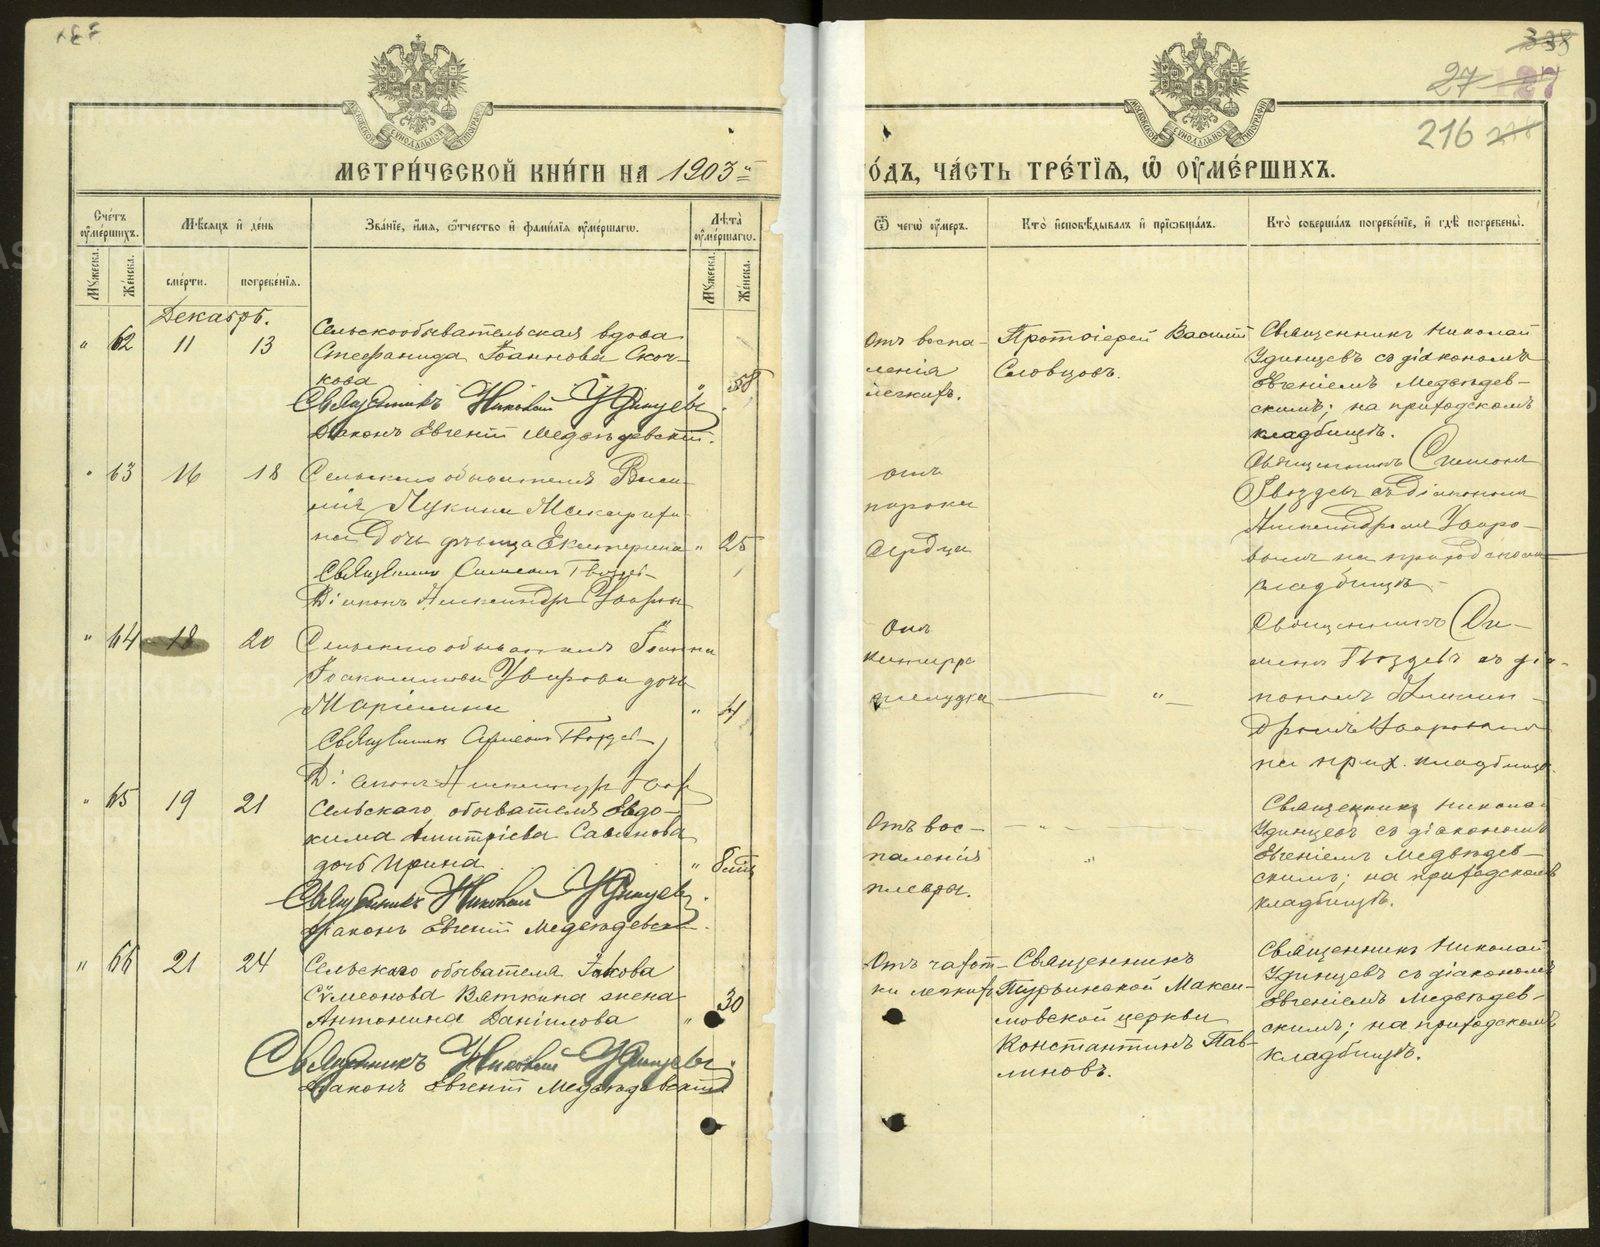 338
27 27
216
МЕТРИ́ЧЕСКОЙ КНИ́ГИ НА 1903й
ГО́ДЪ, ЧА́СТЬ ТРЕ́ТІѦ, Ѿ ОУМЕ́РШИХЪ.
Сче́тъ оуме́ршихъ.
Мꙋжеска.
Же́нска.
Мѣ́сяцъ и҆ де́нь
сме́рти.
погребе́нїѧ.
Зва́нїе, и҆́мѧ, ѻ҆́тчество и҆ фами́лїѧ оуме́ршагѡ.
Лѣ́та оуме́ршагѡ.
Мꙋжеска.
Же́нска.
Ѿ чегѡ̀ оу́меръ.
Кто̀ и҆сповѣ́дывалъ и҆ прїѡбща́лъ.
Кто̀ соверша́лъ погребе́нїе, и҆ гдѣ̀ погребены̀.
Декабрь.
" 62 11 13
Сельскообывательская вдова
Стефанида Іоаннова Скоч-
кова " 58
Священникъ Николай Удинцевъ
Діаконъ Евгеній Медвѣдевскій.
Отъ воспа-
ленія
легкихъ.
Протоіерей Василій
Словцовъ.
Священникъ Николай
Удинцевъ съ діакономъ
Евгеніемъ Медвѣдев-
скимъ; на приходскомъ
кладбищѣ.
" 63 16 18
Сельскаго обывателя Васи-
лія Лукина
дочь дѣвица Екатерина " 25
Священникъ Симеонъ Гвоздевъ
Діаконъ Александръ Уваровъ
отъ
порока
сердца
Священникъ Симеонъ
Гвоздевъ съ діакономъ
Александромъ Уваро-
вымъ на приходскомъ
кладбищѣ
" 64 18 20
Сельскаго обывателя Іоанна
Іоакимова Уварова дочь
" 4
Священникъ Симеонъ Гвоздевъ
Діаконъ Александръ Увар
Отъ
катарра
желудка "
Священникъ Си-
меонъ Гвоздевъ съ діа-
кономъ Алексан-
дромъ Уваровымъ
на прих. кладбищѣ.
" 65 19 21
Сельскаго обывателя Евдо-
кима Дмитріева Савинова
дочь Ирина " 8 мѣс
Священникъ Николай Удинцевъ
Діаконъ Евгеній Медвѣдевскій.
Отъ вос-
паленія
плевры.
"
Священникъ Николай
Удинцевъ съ діакономъ
Евгеніемъ Медвѣдев-
скимъ; на приходскомъ
кладбищѣ.
" 66 21 24
Сельскаго обывателя Іакова
Сѵмеонова Вяткина жена
Антонина Даніилова " 30
Священникъ Николай Удинцевъ
Діаконъ Евгеній Медвѣдевскій
Отъ чахот-
ки легкихъ
Священникъ
Турьинской Макси-
мовской церкви
Константинъ Пав-
линовъ.
Священникъ Николай
Удинцевъ съ діакономъ
Евгеніемъ Медвѣдев-
скимъ; на приходскомъ
кладбищѣ.
METRIKI.GASO-URAL.RU